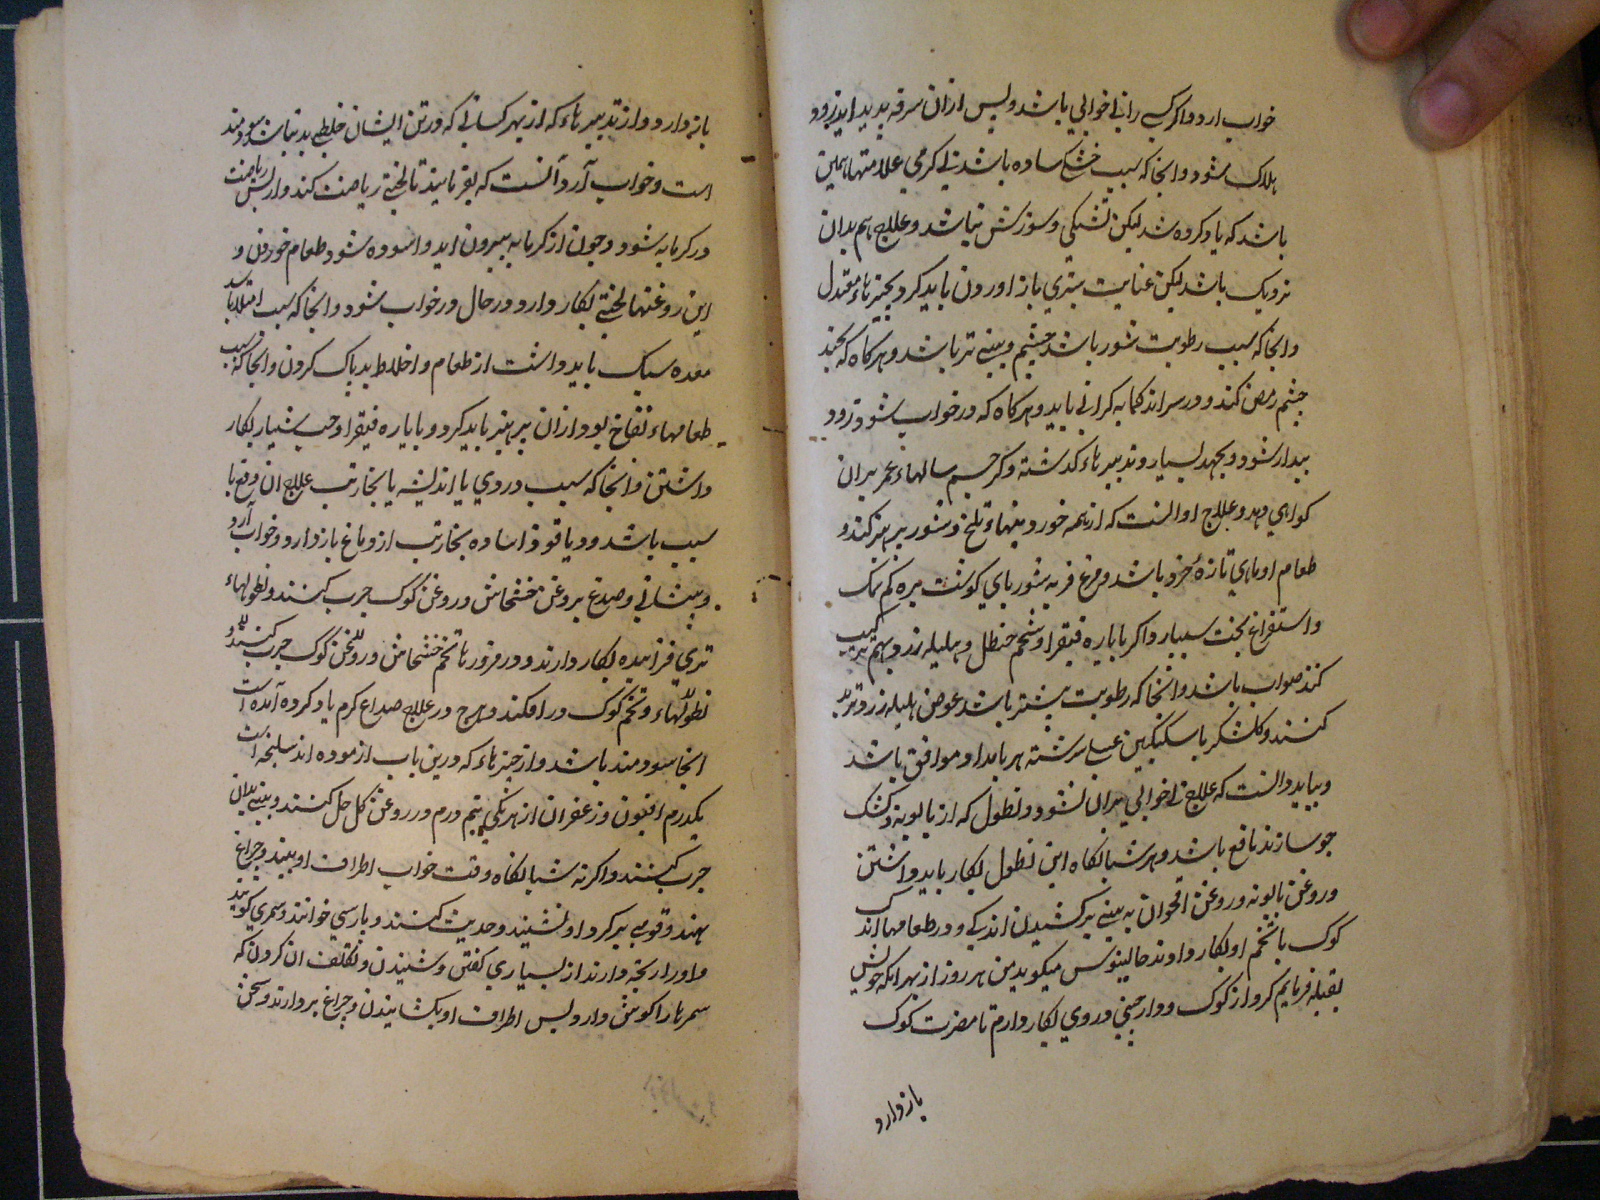 خواب ارد واکر کسی را بی خوابی باشد و پس ازان سرفه پدید اید زود
هلاک شود وانجا که سبب خشکی ساده باشد بی کرمی علامتها همین
باشد که یاد کرده شد لیکن تشنکی و سوزش نباشد و علاج هم بدان
نزدیک باشد لیکن عنایت بتری باز اوردن باید کرد بچیزهاء معتدل
وانجا که سبب رطوبت شور باشد چشم و بینی تر باشد و هرکاه که بخسبد
چشم رمص کند و در سر اندک مایه کرانی یابد و هرکاه که در خواب شود زود
بیدار شود و بجهد بسیار و تدبیرهاء کذشته و کر جسم سالهاء عمر بران
کواهی دهد و علاج او انست که از همه خوردنیهاء تلخ و شور پرهیز کند و
طعام او ماهی تازهٔ خرد باشد و مرغ فربه شوربای کوشت بره کم نمک
واستفراغ بحب سیار واکر بایاره فیقرا و شحم حنظل و هلیله زرد بهم ترکیب
کنند صواب باشد وانجا که رطوبت بیشتر باشد عوض هلیله زرد تربد
کنند و کلشکر با سکنکبین عسلی سرشته هر بامداد موافق باشد
و بباید دانست که علاج بی خوابی پیران نشود و نطول که از بابونه و کشک
جو سازند نافع باشد و هر شبانکاه این نطول بکار باید داشتن
و روغن بابونه و روغن اقحوان به بینی برکشیدن اندکی و در طعامها اندک
کوک با تخم او بکار دارند جالینوس میکوید من هر روز از بهر انکه خویش
بقیله فرمایم کرد از کوک و دارچینی در وی بکار دارم تا مضرت کوک
بازدارد
بازدارد و از تدبیرهاء که از بهر کسانی که در تن ایشان خلطی بد نباشد سودمند
است و خواب آرد آنست که بفرمایند تا لختی ریاضت کند و از پس ریاضت
در کرمابه شود و چون از کرمابه بیرون اید و اسوده شود طعام خوردن و
این روغنها لختی بکار دارد و در حال در خواب شود وانجا که سبب امتلا باشد
معده سبک باید داشت از طعام و اخلاط بد پاک کردن وانجا که سبب
طعامهاء نفاخ بود ازان پرهیز باید کرد و بایاره فیقرا و حب شبیار بکار
داشتن وانجا که سبب دردی یا اندیشه یا بخار تب علاج ان دفع با
سبب باشد و دیاقوذا ساده بخار تب از دماغ بازدارد و خواب آرد
و پیشانی و صدغ بروغن خشخاش و روغن کوک چرب کنند و نطولهاء
تری فزاینده بکار دارند و در مزورها تخم خشخاش و روغن کوک چرب کنند و
نطولهاء و تخم کوک درافکنند و هرچ در علاج صداع کرم یاد کرده آمده است
انجا سودمند باشد و از چیزهاء که درین باب ازموده اند سلیخه است
یکدرم افیون و زعفران از هر یکی نیم درم در روغن کل حل کنند و بینی بدان
چرب کنند و اکر نه شبانکاه وقت خواب اطراف او ببندند و چراغ
بنهند و قومی بر کرد او نشینند و حدیث کنند و پارسی خوانند و سمری کویند
و او را رنجه دارند از بسیاری کفتن و شنیدن و تکلیف ان کردن که
سمرها را کوش دارد و پس اطراف او بکشایندن و چراغ بردارند و سخن